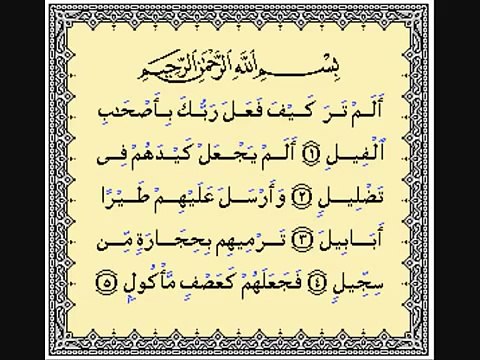 بِسْمِ اللَّهِ الرَّحْمَٰنِ الرَّحِيمِ
أَلَمْ تَرَ كَيْفَ فَعَلَ رَبُّكَ بِأَصْحَابِ
الْفِيلِ ۝١ أَلَمْ يَجْعَلْ كَيْدَهُمْ فِى
تَضْلِيلٍ ۝٢ وَأَرْسَلَ عَلَيْهِمْ طَيْرًا
أَبَابِيلَ ۝٣ تَرْمِيهِم بِحِجَارَةٍ مِّن
سِجِّيلٍ ۝٤ فَجَعَلَهُمْ كَعَصْفٍ مَّأْكُولٍ ۝٥